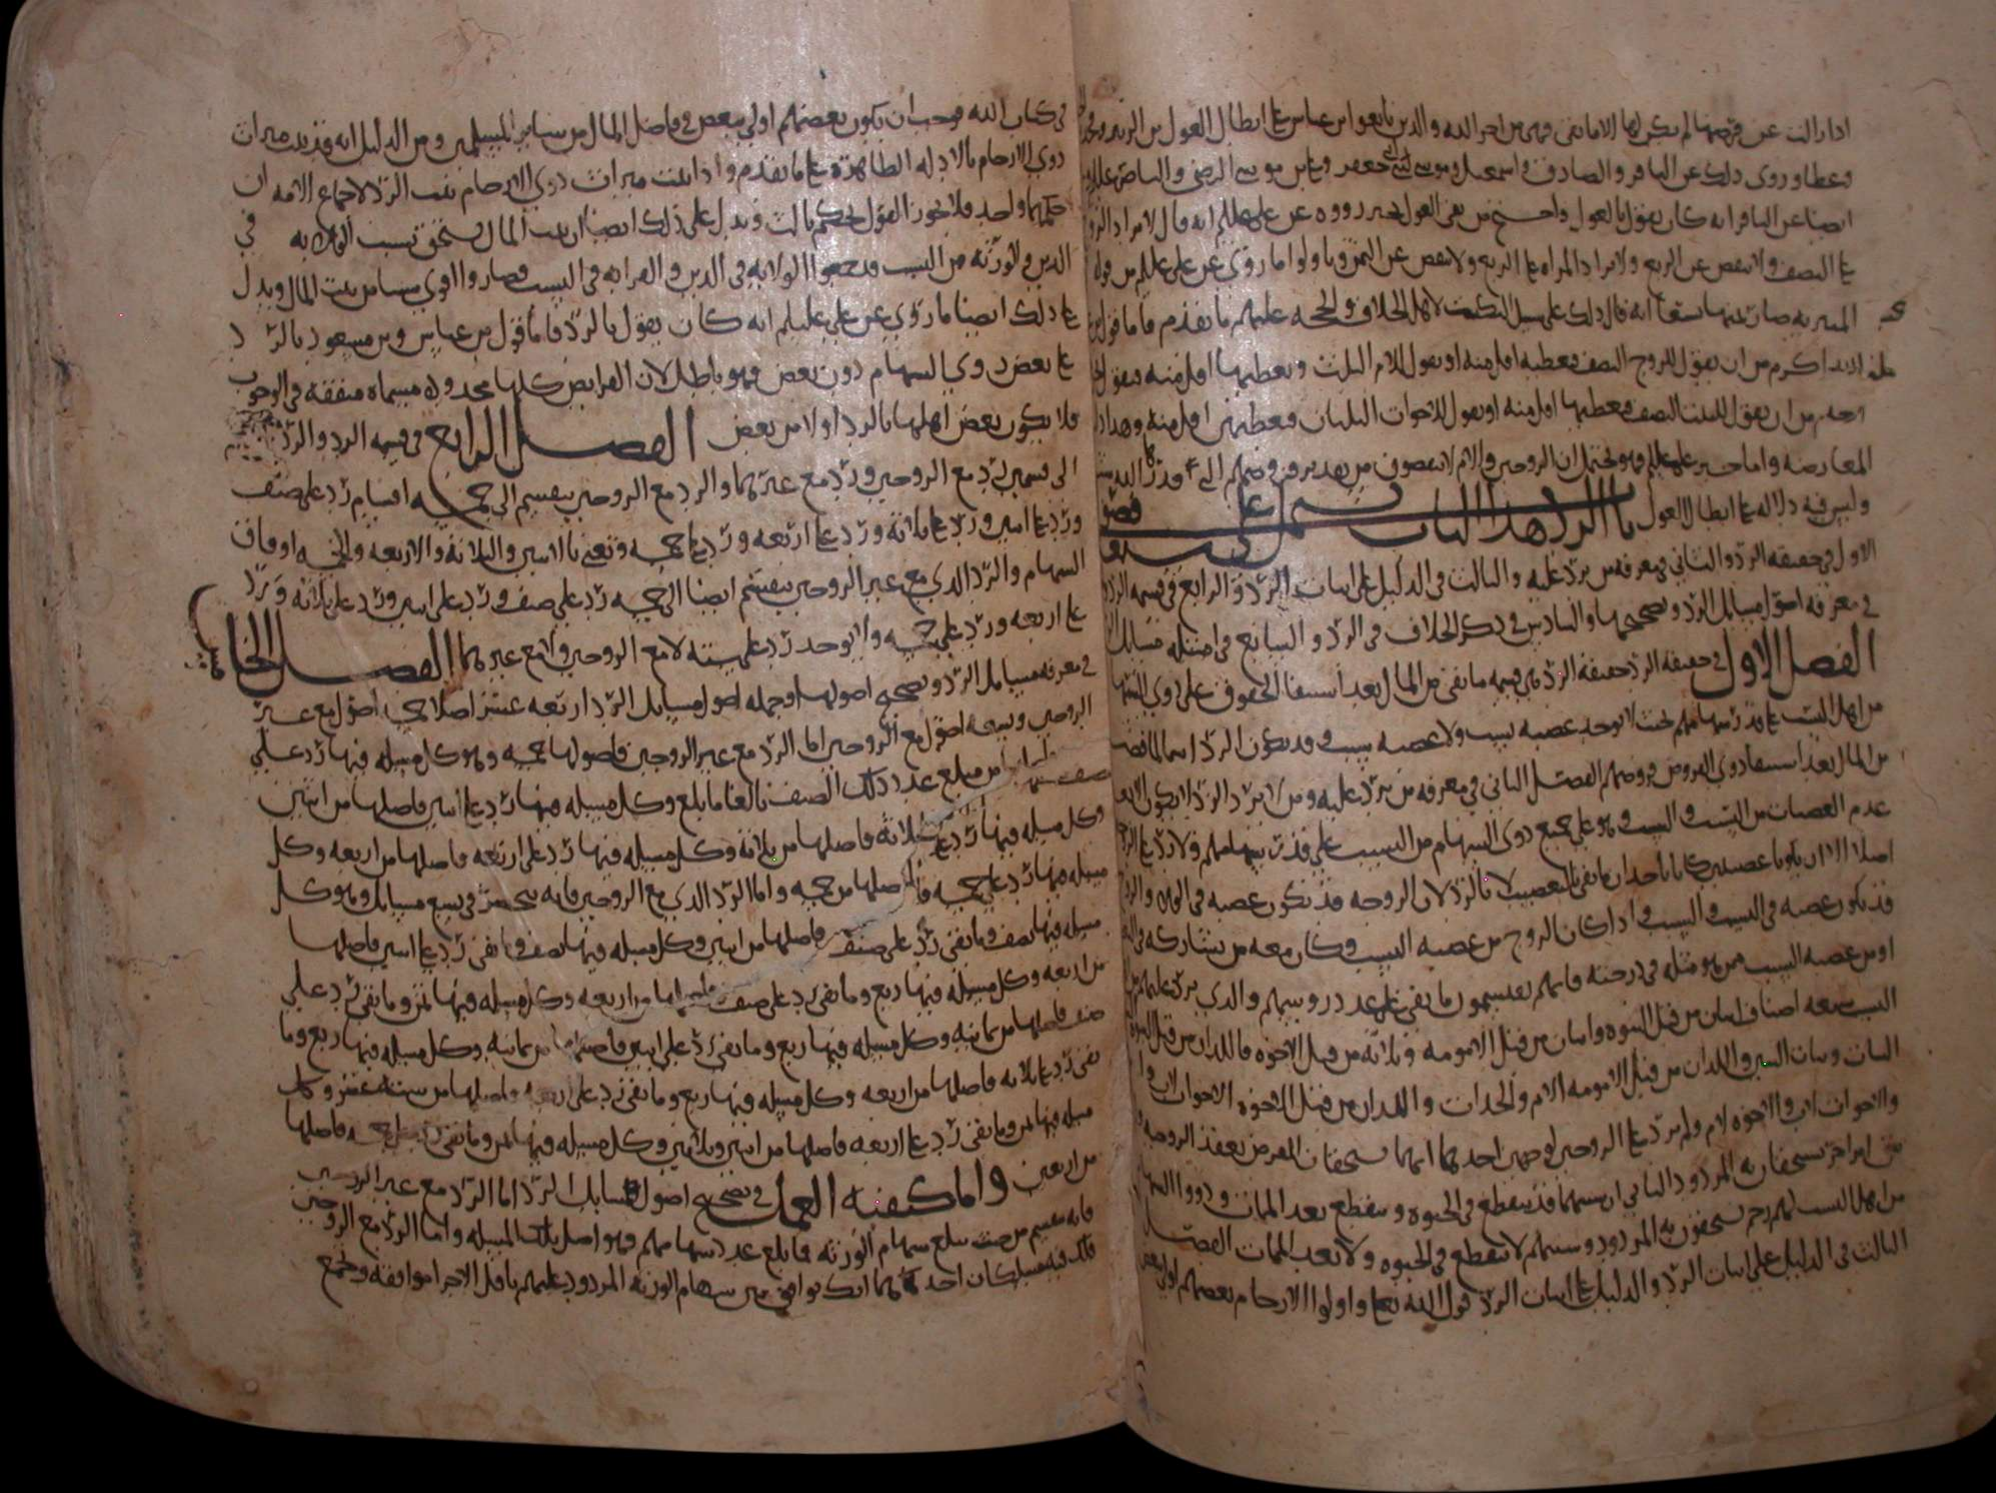 اذا زالت عن فرضها لم يكن لها الا ما بقي فهي من اخر الله والذين تابعوا ابن عباس على ابطال العول بن الزبير
وعطا وروي ذلك عن الباقر والصادق واسمعيل وموسى ابني جعفر وعلي بن موسى الرضى والناصر عليه
ايضا عن الباقر انه كان يقول بالعول واحتج من نفى العول بخبر رووه عن علي عليلم انه قال لا يزاد الزوج
على النصف ولا ينقص عن الربع ولا تزاد المراه على الربع ولا تنقص عن الثمن وتاولوا ما روي عن علي عليلم من قوله
المنبريه صار ثمنها تسعا انه قال ذلك على سبيل التكيت لاهل الخلاف والحجه عليهم ما تقدم فاما قول
ان الله اكرم من ان يقول للزوج النصف فيعطيه اقل منه او يقول للام الثلث ويعطيها اقل منه فيقول
ارحم من ان يقول للبنت النصف فيعطيها اقل منه او يقول للاخوات الثلثان فيعطيهن اقل منه وهذا اذا
المعارضه واما خبر علي عليلم فهو يحتمل ان الزوجين والام لا ينقصون من تقدير فروضهم الى
وليس فيه دلاله على ابطال العول باب الرد هذا الباب يشتمل على سبعه فصول
الاول في حقيقه الرد والثاني في معرفه من يرد عليه والثالث في الدليل على اثبات الرد والرابع في قسمه الرد
في معرفه اصول مسايل الرد وتصحيحها والسادس في ذكر الخلاف في الرد والسابع في امثله مسايل
الفصل الاول في حقيقه الرد حقيقه الرد هي قسمه ما بقي من المال بعد استيفا الحقوق على ذوي السهام
من اهل النسب على قدر سهامهم بحيث لا يوجد عصبه نسب ولا عصبه سبب وقد يكون الرد اسما لما فضل
من المال بعد استيفا ذوي الفروض فروضهم الفصل الثاني في معرفه من يرد عليه ومن لا يرد الرد لا يكون الا بعد
عدم العصبات من النسب والسبب وهو على جميع ذوي السهام من النسب على قدر سهامهم ولا رد على الزوجين
اصلا الا ان يكونا عصبتين كانا ياخذان ما بقي بالتعصيب لا بالرد لان الزوجه قد تكون عصبه في الولا والزوج
قد يكون عصبه في النسب والسبب واذا كان الزوج من عصبه النسب وكان معه من يشاركه في
او من عصبه السبب ممن هو مثله في درجته فانهم يقتسمون ما بقي على عدد روسهم والذي يرد عليهم من
النسب سبعه اصناف اثنان من قبل البنوه واثنان من قبل الامومه وثلاثه من قبل الاخوه فاللذان من قبل البنوه
البنات وبنات البنين واللذان من قبل الامومه الام والجدات والذين من قبل الاخوه الاخوات لاب وام
والاخوات لاب والاخوه لام ولم يرد على الزوجين لوجهين احدهما انهما يستحقان الفرض بعقد الزوجيه
من امر اخر يستحقان به المردود الثاني ان سببهما قد ينقطع في الحيوه وينقطع بعد الممات وذووا السهام
من اهل النسب لهم رحم يستحقون به المردود وسببهم لا ينقطع في الحيوه ولا بعد الممات الفصل
الثالث في الدليل على اثبات الرد والدليل على اثبات الرد قول الله تعالى واولوا الارحام بعضهم اولى ببعض
في كتاب الله فوجب ان يكون بعضهم اولى ببعض في فاضل المال من ساير المسلمين ومن الدليل انه قد ثبت ميراث
ذوي الارحام بالادله الظاهره على ما تقدم واذا ثبت ميراث ذوي الارحام ثبت الرد لاجماع الامه ان
حكمهما واحد فلا يجوز القول بحكم ثالث ويدل على ذلك ايضا ان بيت المال يستحق بسبب الولايه في
الدين والورثه من النسب قد جمعوا الولايه في الدين والقرابه في النسب فصاروا اقوى سببا من بيت المال ويدل
على ذلك ايضا ما روي عن علي عليلم انه كان يقول بالرد فاما قول بن عباس وبن مسعود بالرد
على بعض ذوي السهام دون بعض فهو باطل لان الفرايض كلها محدوده مسماه متفقه في الوجوب
فلا يكون بعض اهلها بالرد اولا من بعض الفصل الرابع في قسمه الرد والرد
الى قسمين رد مع الزوجين ورد مع غيرهما والرد مع الزوجين ينقسم الى خمسه اقسام رد على صنف
ورد على اثنين ورد على ثلاثه ورد على اربعه ورد على خمسه ونعني بالاثنين والثلاثه والاربعه والخمسه اوفاق
السهام والرد الذي مع غير الزوجين ينقسم ايضا الى خمسه رد على صنف ورد على اثنين ورد على ثلاثه ورد
على اربعه ورد على خمسه ولا يوجد رد على سته لا مع الزوجين ولا مع غيرهما الفصل الخامس
في معرفه مسايل الرد وتصحيح اصولها وجمله اصول مسايل الرد اربعه عشر اصلا خمسه اصول مع غير
الزوجين وتسعه اصول مع الزوجين اما الرد مع غير الزوجين فاصولها خمسه وهو كل مسله فيها رد على
صنف فاصلها من مبلغ عدد ذلك الصنف بالغا ما بلغ وكل مسله فيها رد على اثنين فاصلها من اثنين
وكل مسله فيها رد على ثلاثه فاصلها من ثلاثه وكل مسله فيها رد على اربعه فاصلها من اربعه وكل
مسله فيها رد على خمسه فاصلها من خمسه واما الرد الذي مع الزوجين فانه ينحصر في تسع مسايل وهو كل
مسله فيها نصف وما بقي رد على صنف فاصلها من اثنين وكل مسله فيها نصف وما بقي رد على اثنين فاصلها
من اربعه وكل مسله فيها ربع وما بقي رد على صنف فاصلها من اربعه وكل مسله فيها ثمن وما بقي رد على
صنف فاصلها من ثمانيه وكل مسله فيها ربع وما بقي رد على اثنين فاصلها من ثمانيه وكل مسله فيها ربع وما
بقي رد على ثلاثه فاصلها من اربعه وكل مسله فيها ربع وما بقي رد على اربعه فاصلها من سته عشر وكل
مسله فيها ثمن وما بقي رد على اربعه فاصلها من اثنين وثلاثين وكل مسله فيها ثمن وما بقي رد على خمسه فاصلها
من اربعين واما كيفيه العمل في تصحيح اصول مسايل الرد اما الرد مع غير الزوجين
فانه تقسيم من حيث تبلغ سهام الورثه فما بلغ عدد سهامهم فهو اصل تلك المسله واما الرد مع الزوجين
فلك فيه مسلكان احدهما انك توافق بين سهام الورثه المردود عليهم باقل الاجزا موافقه وتجمع